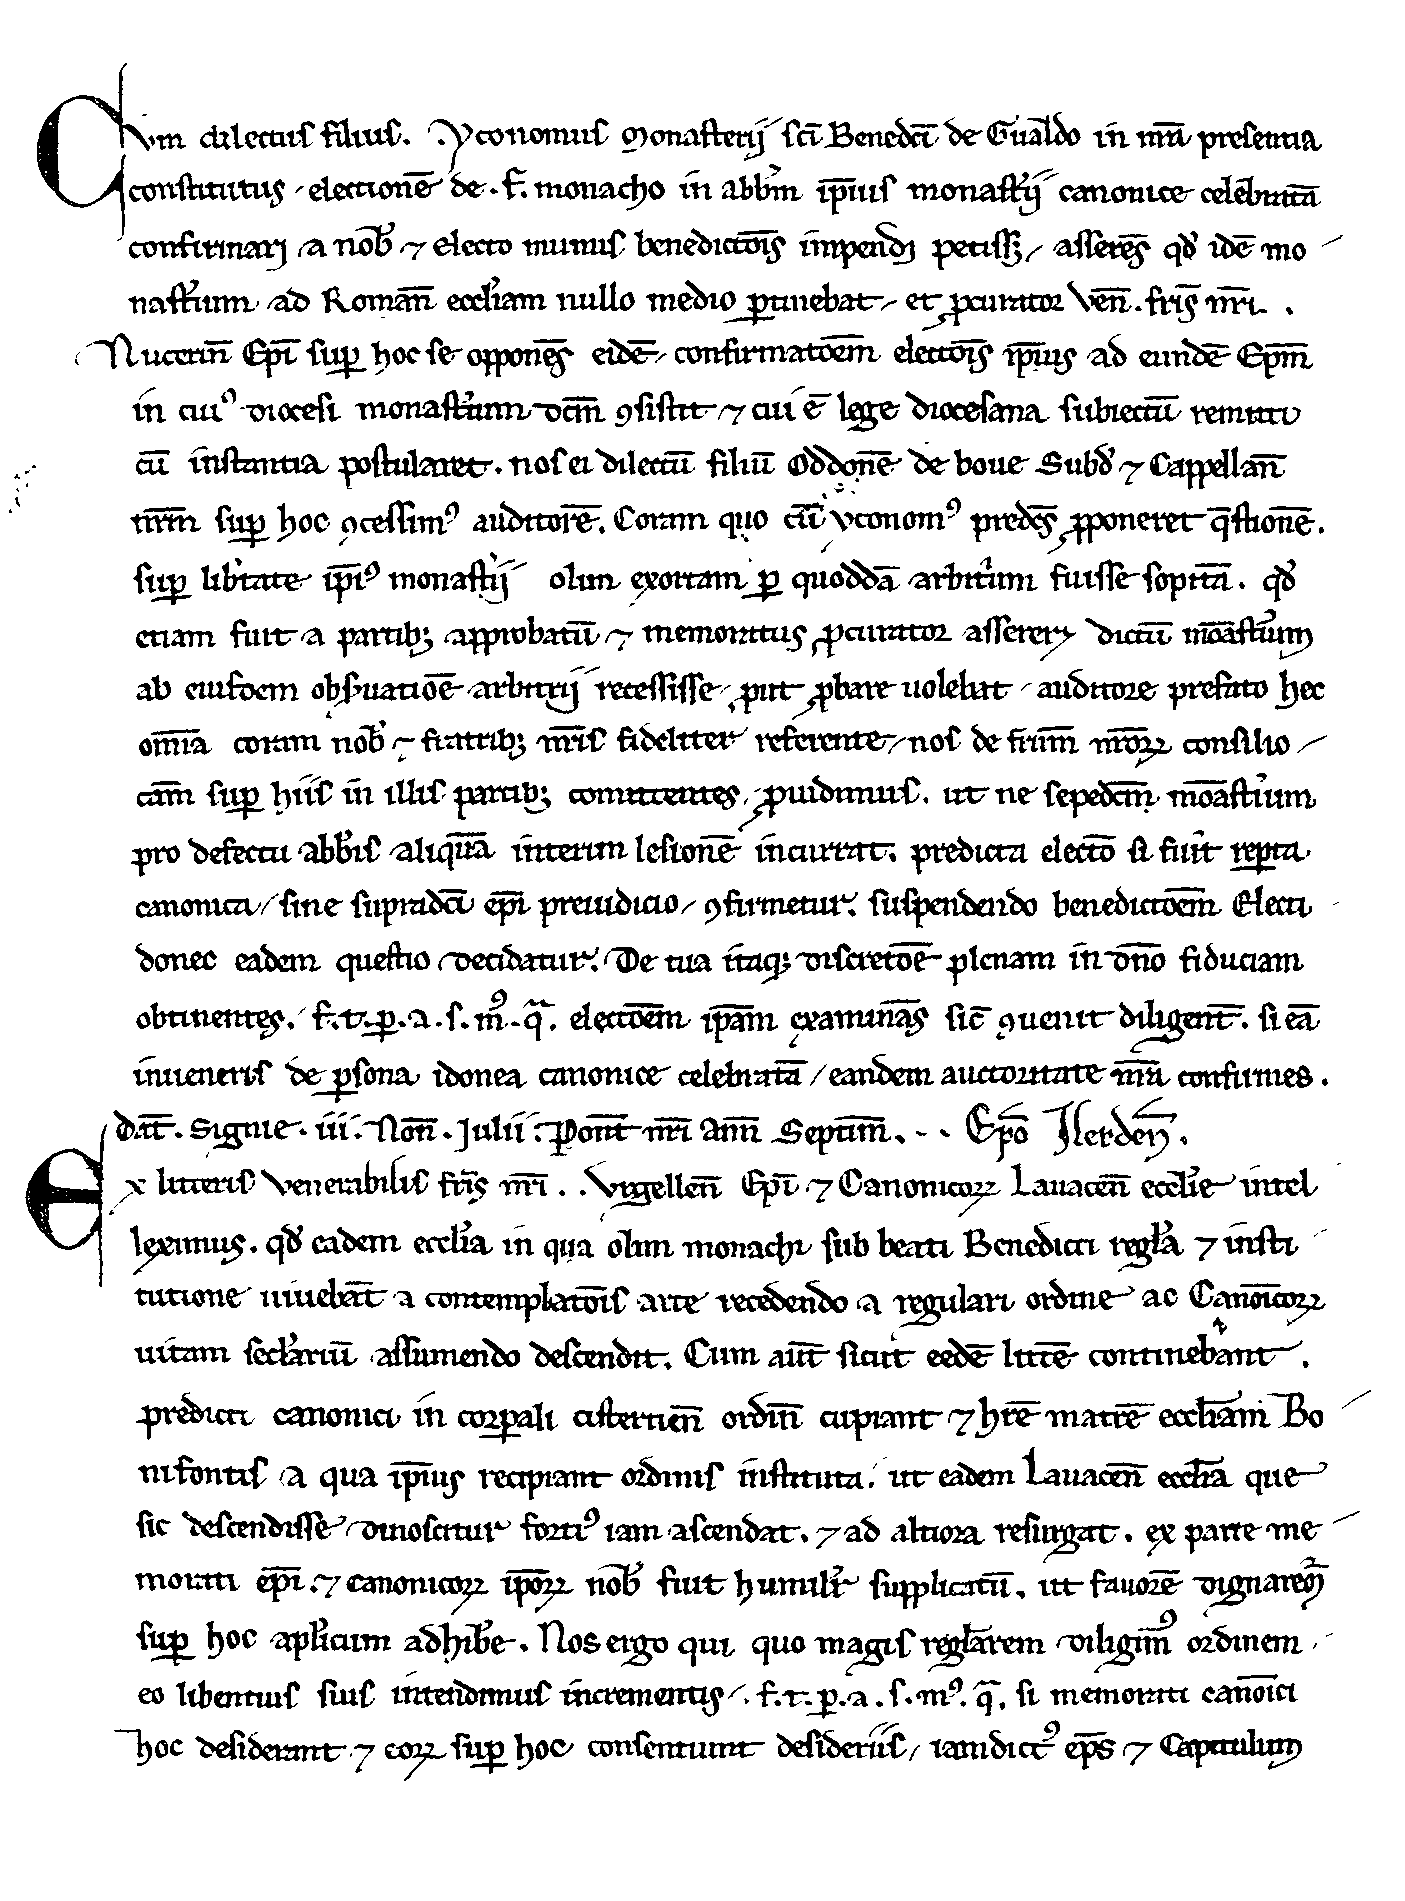 Cum dilectus filius. Yconomus Monasterij sci̅ Bened̅ci de Gualdo in nr̅a presentia
constitutus, electione̅ de .f. monacho in abb̅m ip̅ius monast̅ij canonice celebrata̅
confirmari a nob̅ ⁊ electo munus benedicto̅is impendi petiss; / assere̅s qd̅ ide̅ mo
nast̅ium ad Roman̅ eccl̅iam nullo medio p̲tinebat, et p̲curator Ven̅. fr̅is nr̅i .
Nucerin̅ Ep̅i sup̲ hoc se oppone̅s eide̅, confirmato̅em electo̅is ip̅ius ad eunde̅ Ep̅m
in cuiꝰ diocesi monast̅ium dc̅m ꝯsistit ⁊ cui e̅ lege diocesana subiectu̅ remitti
cu̅ instantia postularet. nos ei dilectu̅ filiu̅ Oddone̅ de boue Subd̅ ⁊ Cappellan̅
nr̅m sup̲ hoc ꝯcessimꝰ auditore̅. Coram quo cu̅ yconomꝰ pred̅cs p̲poneret q̅stione̅.
sup̲ lib̅tate ip̅iꝰ monast̅ij olim exortam p̲ quodda̅ arbit̅ium fuisse sopita̅. qd̅
etiam fuit a partib; approbatu̅ ⁊ memoratus p̲curator assereret dictu̅ mo̅ast̅ium
ab eiusdem obs̅uatio̅e arbitrij recessisse, p̲ut p̲bare uolebat, auditore prefato hec
om̅ia coram nob̅ ⁊ fratrib; nr̅is fideliter referente, nos de fr̅um nr̅oꝝ consilio /
ca̅m sup̲ hiis in illis partib; co̅mittentes, p̲uidimus. ut ne seped̅cm mo̅ast̅ium
pro defectu abb̅is aliqua̅ interim lesione̅ incurrat. predicta electo̅ si fu̅it rep̲ta
canonica / sine suprad̅ci ep̅i preiudicio, ꝯfirmetur. suspendendo benedicto̅em Electi
donec eadem questio decidatur. De tua itaq; discreto̅e plenam in dn̅o fiduciam
obtinentes. f. t. p̲. a. s. mꝰ. q̅. electo̅em ip̅am examina̅s sic̅ ꝯuenit diligent̅. si ea̅
inueneris de p̲sona idonea canonice celebrata̅ / eandem auctoritate nr̅a confirmes.
dat̅. Signie. iii. Non̅. Julii. Pont̅ nr̅i ann̅ Septim̅. . . Ep̅o Ilerden̅.
Ex litteris Venerabilis fr̅is nr̅i . . Vrgellen̅ Ep̅i ⁊ Canonicoꝝ Lauacen̅ eccl̅ie intel
leximus. qd̅ eadem eccl̅ia in qua olim monachi sub beati Benedicti regl̅a ⁊ insti
tutione uiueba̅t a contemplato̅is arte recedendo a regulari ordine ac Cano̅icoꝝ
uitam secl̅ariu̅ assumendo descendit. Cum aut̅ sicut eede̅ litte̅ continebant .
predicti canonici in corp̲ali cistercien̅ ordin̅ cupiant ⁊ h̅re matre̅ eccl̅iam Bo
nifontis a qua ip̅ius recipiant ordinis instituta. ut eadem Lauacen̅ eccl̅ia que
sic descendisse dinoscitur fortiꝰ iam ascendat. ⁊ ad altiora resurgat. ex parte me
morati ep̅i. ⁊ canonicoꝝ ip̅oꝝ nob̅ fuit humilit̅ supplicatu̅. ut fauore̅ dignarem̅
sup̲ hoc apl̅icum adhib̅e. Nos ergo qui quo magis regl̅arem diligimꝰ ordinem
eo libentius suis intendimus incrementis. f. t. p̲. a. s. mꝰ. q̅. si memorati cano̅ici
hoc desiderant ⁊ eoꝝ sup̲ hoc consentiunt desideriis, iamdictꝰ ep̅s ⁊ Capitulum